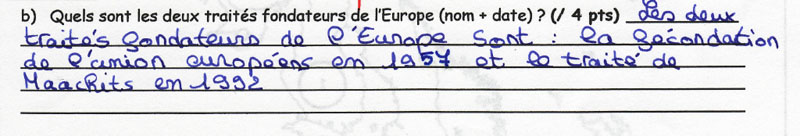 b) Quels sont les deux traités fondateurs de l'Europe (nom + date) ? (/ 4 pts) Les deux
traités fondateurs de l'Europe sont : la fécondation
de l'union européens en 1957 et le traité de
Maackits en 1992